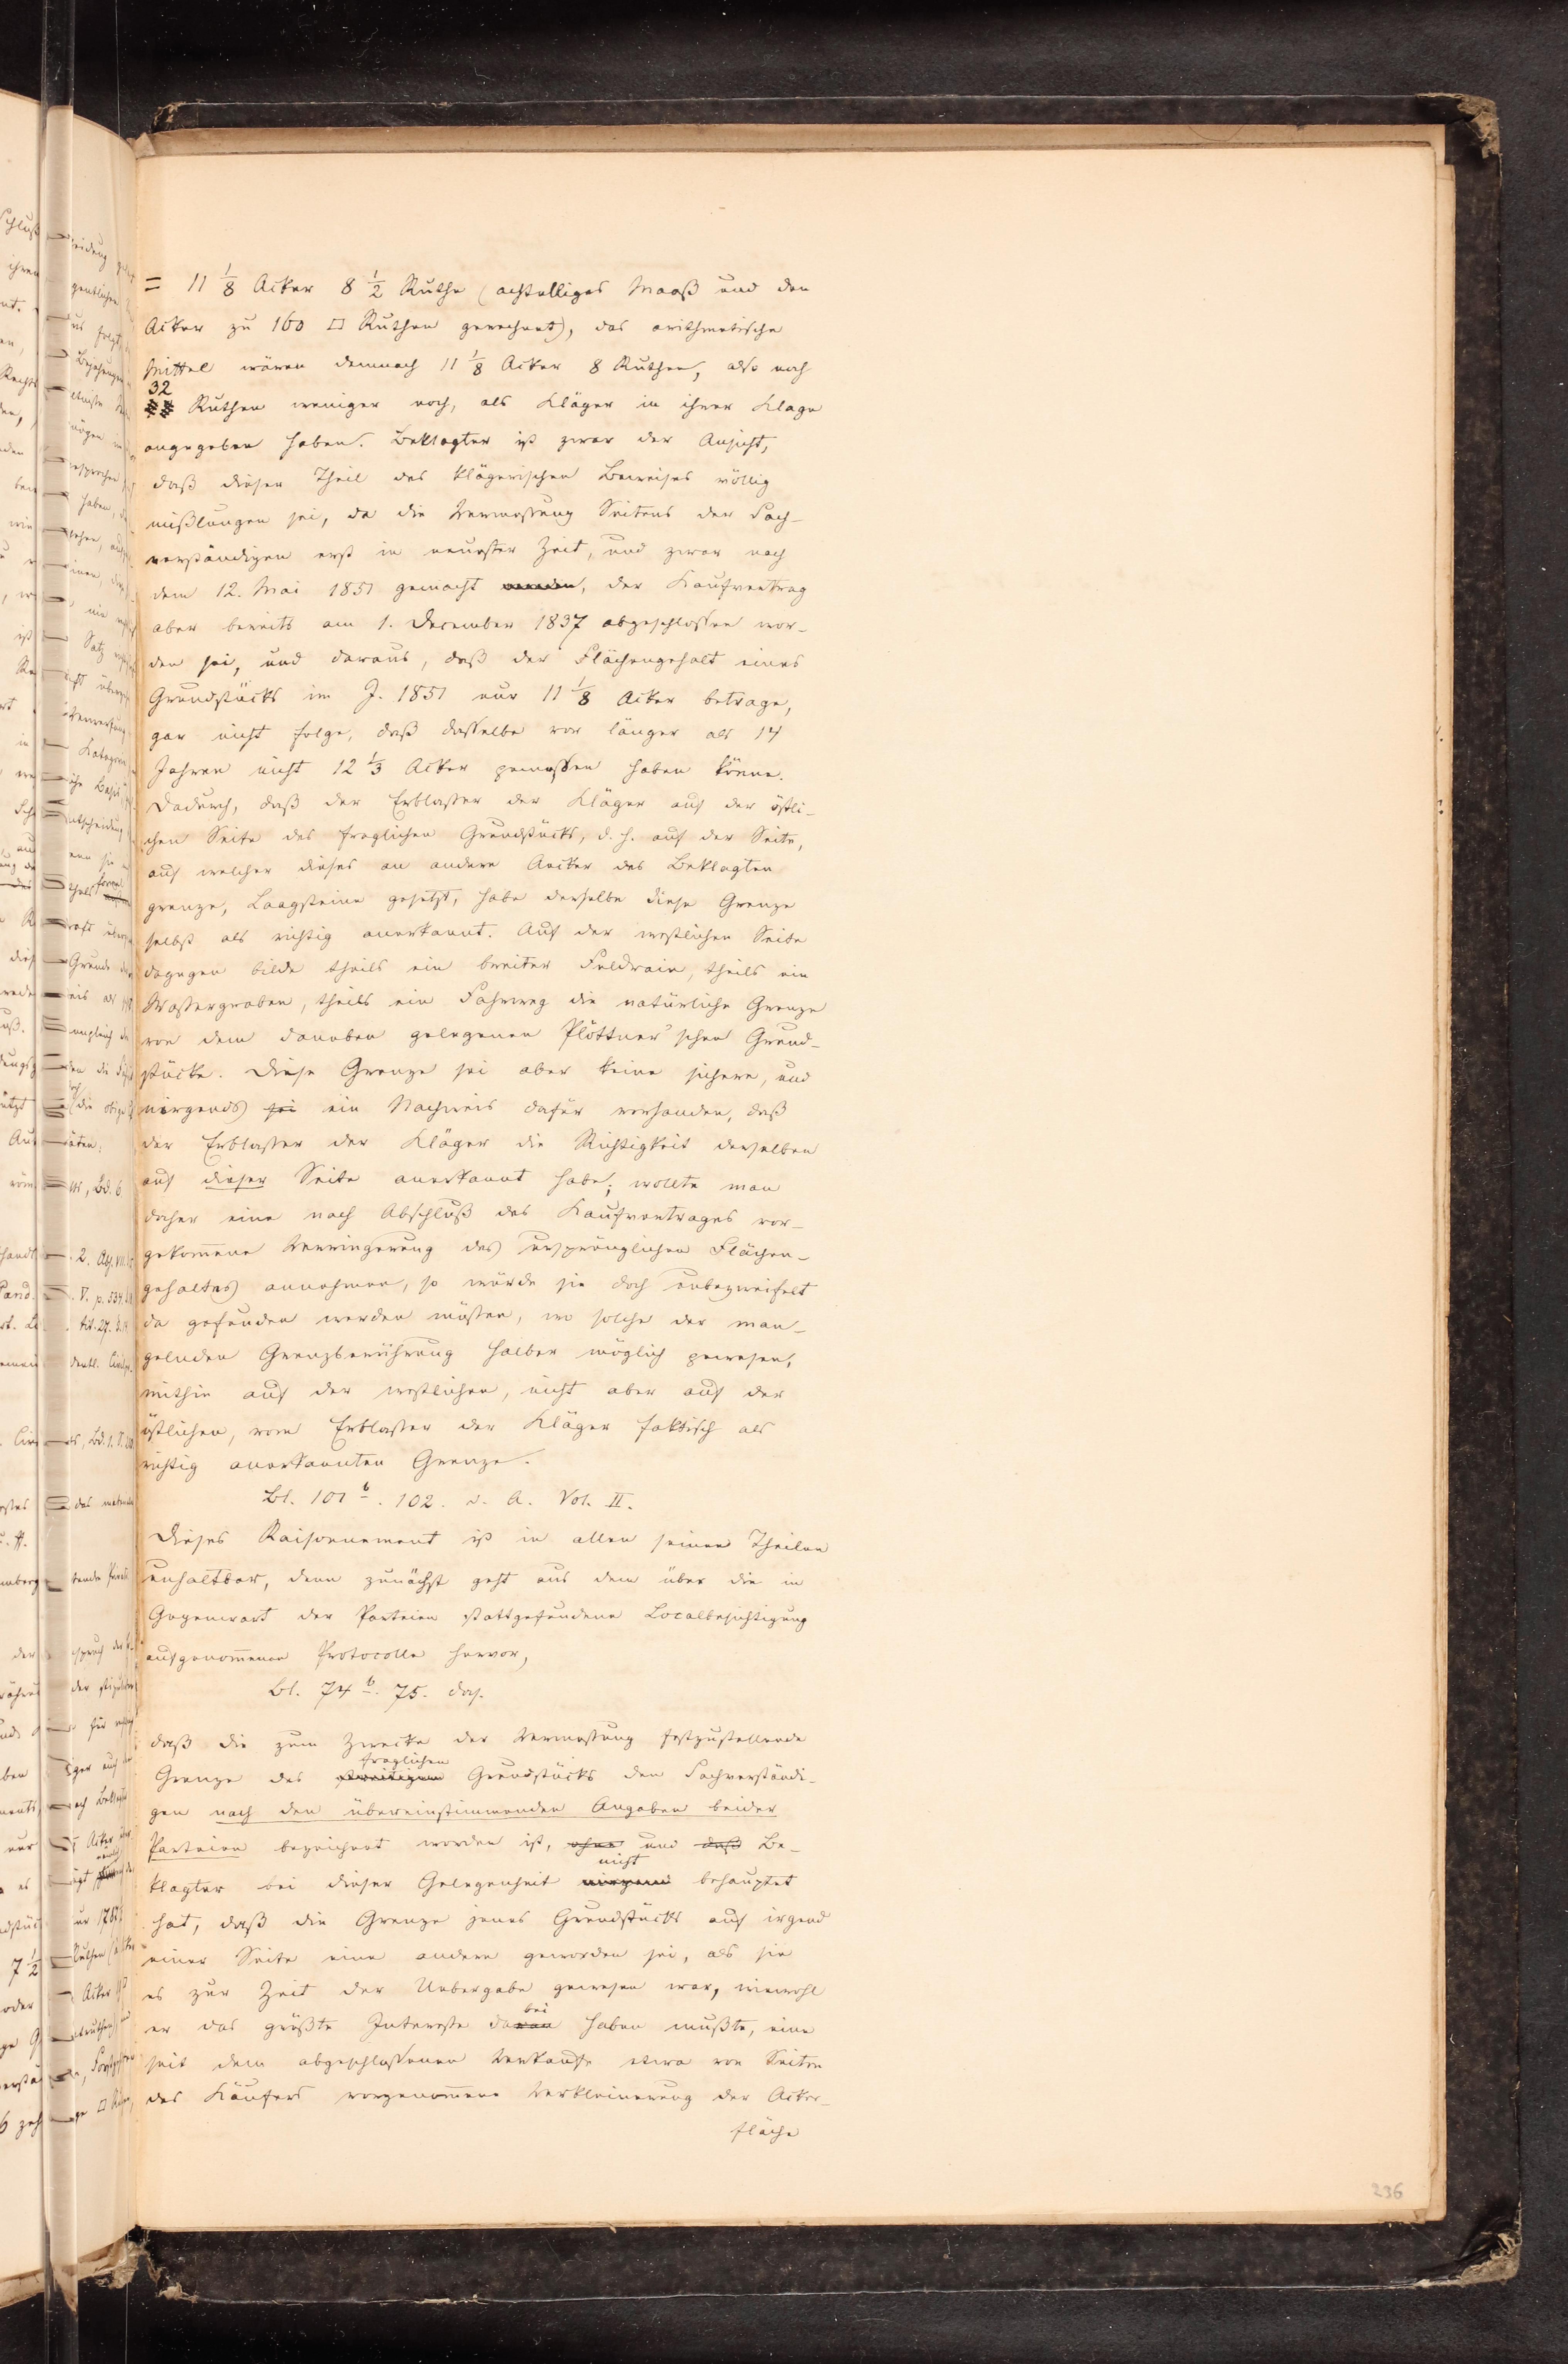 = 11 1/8 Acker 8 1/2 Ruthe (achtelliges Maaß und den
Acker zu 160 □ Ruthen gerechnet), das arithmetische
Mittel wären demnach 11 1/8 Acker 8 Ruthen, also noch
32
Ruthen weniger noch, als Kläger in ihrer Klage
angegeben haben. Beklagter ist zwar der Ansicht,
daß dieser Theil des klägerischen Beweises völlig
mißlungen sei, da die Vermessung Seitens der Sach-
verständigen erst in neuester Zeit, und zwar nach
dem 12. Mai 1851 gemacht worden, der Kaufvertrag
aber bereits am 1. December 1837 abgeschlossen wor-
den sei, und daraus, daß der Flächengehalt eines
Grundstücks im J. 1851 nur 11 1/8 Acker betrage,
gar nicht folge, daß dasselbe vor länger als 14
Jahren nicht 12 1/3 Acker gemessen haben könne.
Dadurch, daß der Erblasser der Kläger auf der östli-
chen Seite des fraglichen Grundstücks, d. h. auf der Seite,
auf welcher dieses an andere Aecker des Beklagten
grenze, Laagsteine gesetzt, habe derselbe diese Grenze
selbst als richtig anerkannt. Auf der westlichen Seite
dagegen bilde theils ein breiter Feldrain, theils ein
Wassergraben, theils ein Fahrweg die natürliche Grenze
von dem daneben gelegenen Plöttner'schen Grund-
stücke. Diese Grenze sei aber keine sichere, und
nirgends sei ein Nachweis dafür vorhanden, daß
der Erblasser der Kläger die Richtigkeit derselben
auf dieser Seite anerkannt habe; wollte man
daher eine nach Abschluß des Kaufvertrages vor-
gekom̅ene Verringerung des ursprünglichen Flächen-
gehaltes annehmen, so würde sie doch unbezweifelt
da gefunden werden müssen, wo solche der man-
gelnden Grenzberührung halber möglich gewesen,
mithin auf der westlichen, nicht aber auf der
östlichen, vom Erblasser der Kläger faktisch als
richtig anerkannten Grenze.
Bl. 101 b. 102. d. A. Vol. II.
Dieses Raisonnement ist in allen seinen Theilen
unhaltbar, denn zunächst geht aus dem über die in
Gegenwart der Parteien stattgefundene Localbesichtigung
aufgenom̅enen Protocolle hervor,
Bl. 74 b. 75. das.
daß die zum Zwecke der Vermessung festzustellende
fraglichen
Grenze des streitigen Grundstücks den Sachverständi-
gen nach den übereinstimmenden Angaben beider
Parteien bezeichnet worden ist, ohne und daß Be-
nicht
klagter bei dieser Gelegenheit nirgend behauptet
hat, daß die Grenze jenes Grundstücks auf irgend
einer Seite eine andere geworden sei, als sie
es zur Zeit der Uebergabe gewesen war, wiewohl
bei
er das größte Interesse daran haben mußte, eine
seit dem abgeschlossenen Verkaufe etwa von Seiten
des Käufers vorgenom̅ene Verkleinerung der Acker-
fläche
236